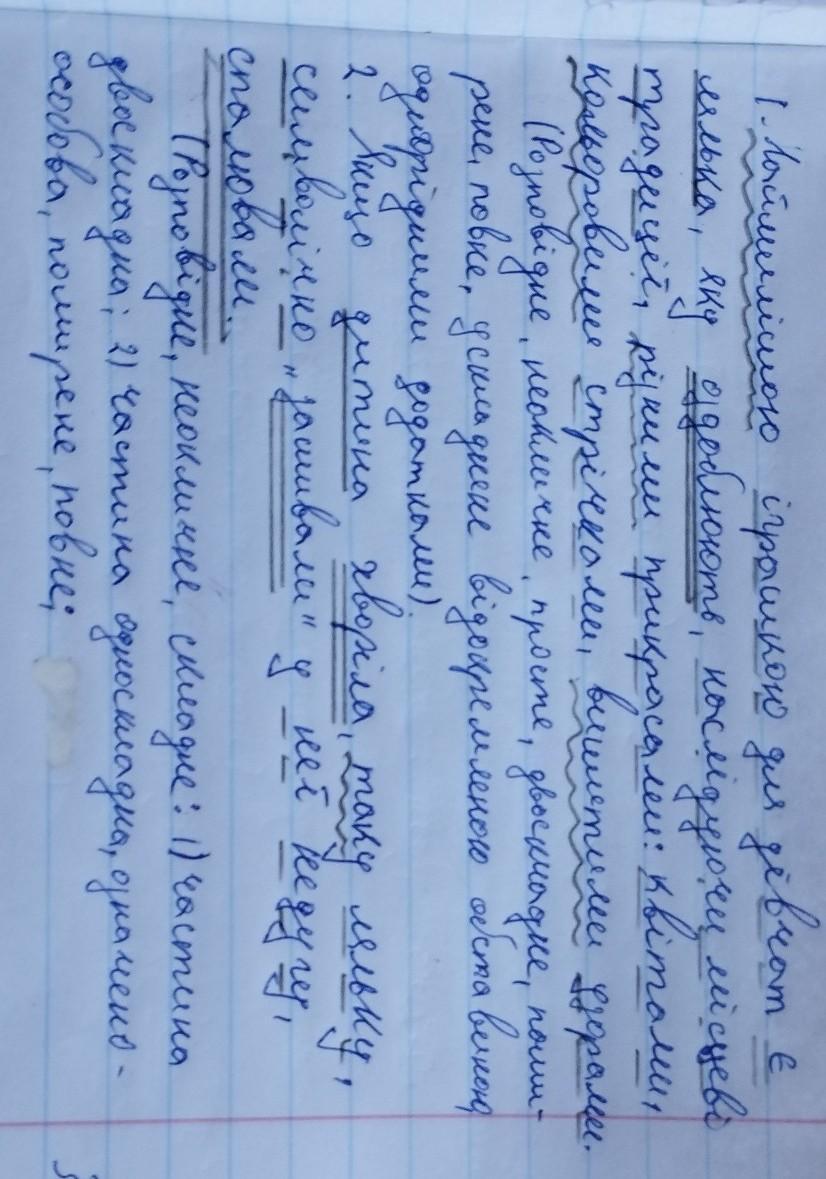 1. Наймилішою іграшкою для дівчат є
лялька, яку оздоблюють, наслідуючи місцеві
традиції, різними прикрасами: квітами,
кольоровими стрічками, вишитими узорами.
(Розповідне, неокличне, просте, двоскладне, поши-
рене, повне, ускладнене відокремленою обставиною
однорідними додатками)
2. Якщо дитина хворіла, таку ляльку,
символічно „зашивали" у неї недуги,
спалювали.
(Розповідне, неокличне, складне: 1) частина
двоскладна; 2) частина односкладна, означено-
особова, поширене, повне;